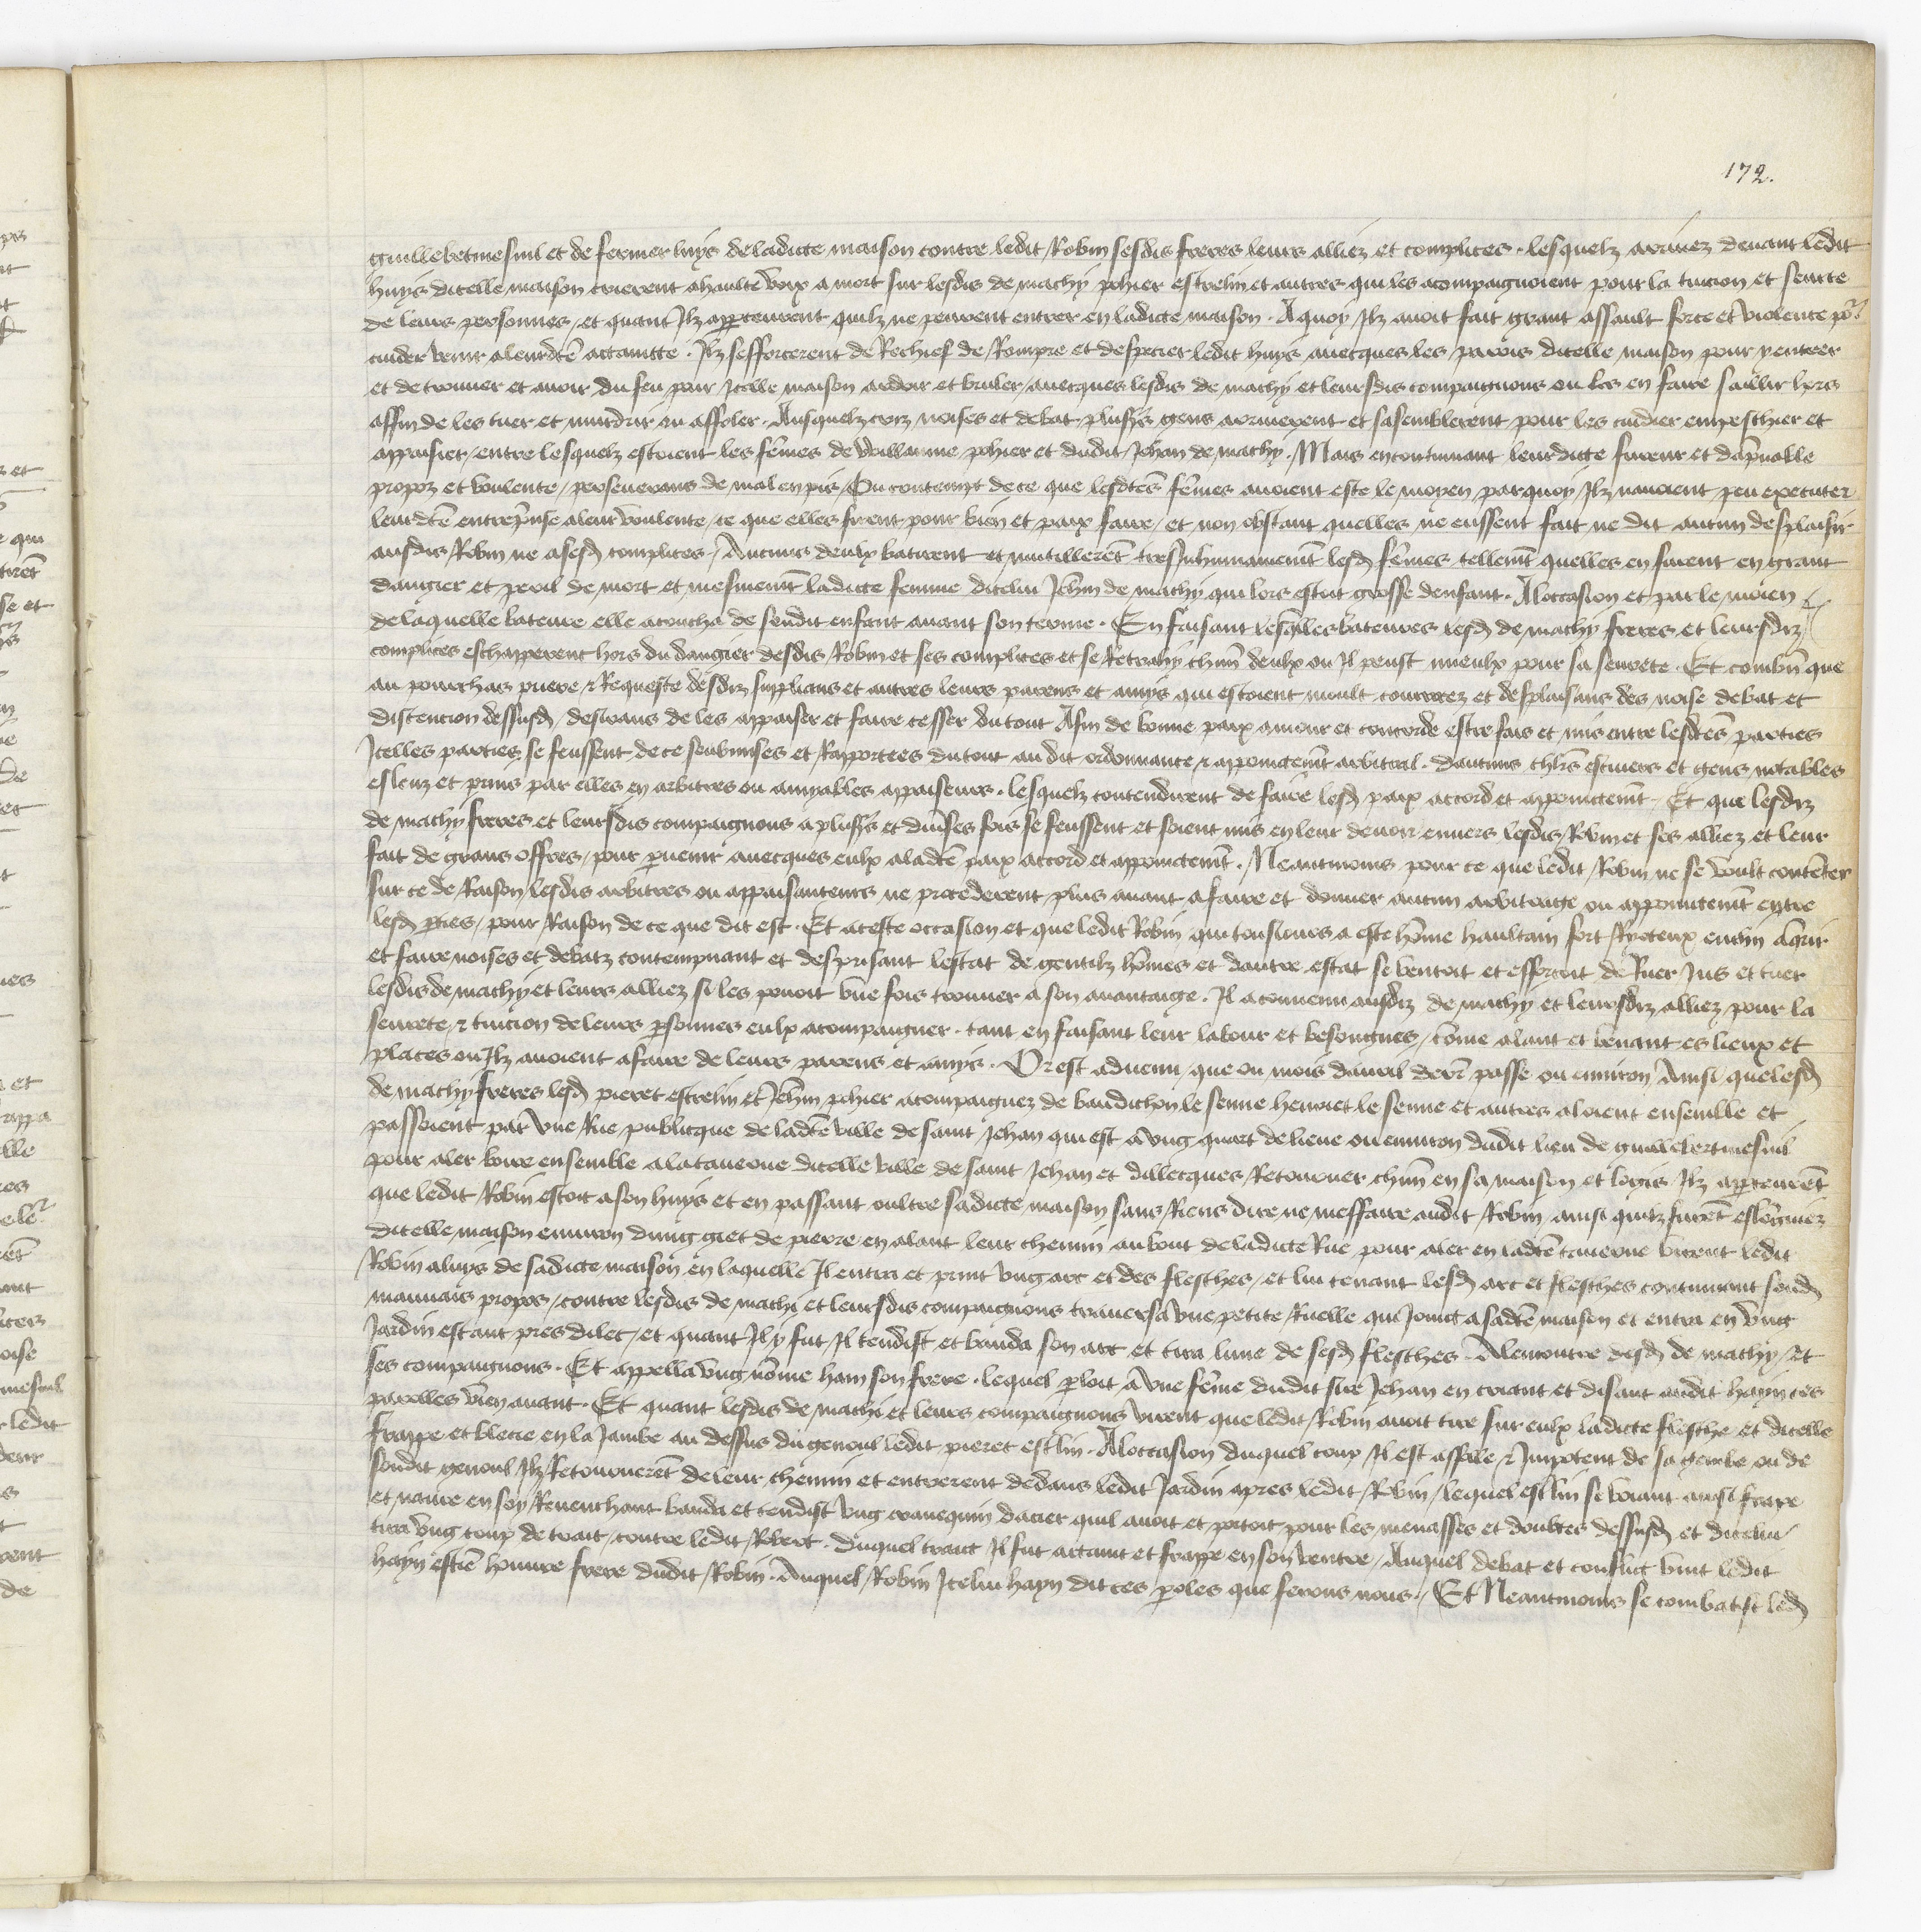 172.
guillebetmesnil et de fermer luys deladicte maison contre ledit Robin sesdis freres leurs alliez et complices . lesquelz arrivez devant ledit
huys dicelle maison crierent ahaulte voix a mort sur lesdis de machy phier estrelin et autres qui les acompaignoient pour la tuicion et seurte
de leurs personnes / et quant Ilz apperceurent quilz ne peurent entrer en ladicte maison . Aquoy Ilz avoit fait grant assault force et violence po2
cuider venir aleurdte attainte . Ilz sefforcerent de Rechief de Rompre et despecier ledit huys avecques les parois dicelle maison pour y entrer
et de trouver et avoir du feu pour Icelle maison ardoir et bruler / avecques lesdis de machy et leursdis compaignons ou les en faire saillir hors
affin de les tuer et murdrir ou affoler . Ausquelz criz noises et debat plusrs gens arriverent et sasemblerent pour les cuidier empeschier et
appaisier / entre lesquelz estoient les fêmes de Willaume phier et dudit Jehan de machy . Mais encontinuant leurdicte fureur et dapnable
propoz et voulente / perseverans de mal en pis / Ou contempt dece que lesdtes fêmes avoient este le moyen parquoy Ilz navoient peu executer
leurdte entreprinse aleur voulente / ce que elles firent pour bien et paix faire / et non obstant quelles ne eussent fait ne dit aucun desplaisir
ausdis Robin ne asesd complices / Aucuns deulx batirent et mutillerêt tresInhumainemt lesd fêmes tellemt quelles en furent en grant
dangier et peril de mort et mesmemt ladicte femme dicelui Jehan de machy qui lors estoit grosse denfant . Aloccasion et par le moien
delaquelle bateure elle acoucha de sondit enfant avant son terme . En faisant lesqlles bateures lesd de machy freres et leursdiz
complices eschapperent hors du dangier desdis Robin et ses complices et se Retrahy chun deulx ou Il peust mieulx pour sa seurete . Et combn que
au pourchas priere & Requeste desdiz supplians et autres leurs parens et amys qui estoient moult courrocez et desplaisans des noise debat et
distencion dessusd / desirans de les appaiser et faire cesser du tout Afin de bonne paix amour et concorde estre fais et mis entre lesdtes parties
Icelles parties se feussent de ce soubmises et Rapportees dutout au dit ordonnance & appoinctemt arbitral . daucuns chlrs escuiers et gens notables
esleuz et prins par elles en arbitres ou amyables appaiseurs . lesquelz contendirent de faire lesd paix accord et appoinctemt / Et que lesdiz
de machy freres et leursdis compaignons a plusrs et diuses fois se feussent et soient mis en leur devoir envers lesdis Robin et ses alliez et leur
fait de grans offres / pour pvenir avecques eulx aladte paix accord et appoinctemt . Neantmoins pour ce que ledit Robin ne se voult contêter
sur ce de Raison / lesdis arbitres ou appaisanteurs ne procederent plus avant a faire et donner aucun arbitraige ou appoinctemt entre
lesd pties / pour Raison de ce que dit est . Et aceste occasion et que ledit Robin qui tousiours a este hôme haultain fort Ryoteux enclin aqrir
et faire noises et debatz contempnant et desprisant lestat de gentilz hômes et dautre estat se ventoit et efforcoit de Ruer Jus et tuer
lesdis de machy et leurs alliez si les povoit une fois trouver a son avantaige . Il a convenu ausdiz de machy et leursdiz alliez pour la
seurete & tuicion deleurs psonnes eulx acompaigner . tant en faisant leur labour et besongnes / côme alant et venant es lieux et
places ou Ilz avoient afaire de leurs parens et amys . Or est advenu que ou mois davril derr passe ou environ Ainsi quelesd
de machy freres lesd pieret estrelin et Jehan phier acompaignez de baudichon le senne henriet le senne et autres aloient ensemble et
passoient par une Rue publicque de ladte ville de saint Jehan qui est a ung quart delieue ou environ dudit lieu de guillebertmesnil
pour aler boire ensemble alataverne dicelle ville de saint Jehan et dillecques Retourner chun en sa maison et logis Ilz apperceurêt
que ledit Robin estoit ason huys et en passant oultre sadicte maison sans Riens dire ne meffaire audit Robin ainsi quilz furêt eslongniez
dicelle maison environ dung giet de pierre en alant leur chemin au bout deladicte Rue pour aler en ladte taverne virent ledit
Robin aluys de sadicte maison en laquelle Il entra et print ung arc et des flesches / et lui tenant lesd arc et flesches continuant sond
mauvais propos / contre lesdis de machi et leursdis compaignons traversa une petite Ruelle qui Joingt asadte maison et entra en ung
Jardin estant pres dilec / et quant Il y fut Il tendist et banda son arc et tira lune de sesd flesches . Alencontre desd de machy / et
ses compaignons . Et appella ung nôme hain son frere . lequel ploit a une fême dudit sire Jehan en criant et disant audit hayn ces
parolles vien avant . Et quant lesdis de machi et leurs compaignons virent que ledit Robin avoit tire sur eulx ladicte flesche et dicelle
frappe et blecie en la Jambe au dessus du genoul ledit pieret estlin . Aloccasion duquel coup Il est affole & Impotent de sa jambe ou de
sondit genoul Ilz Retournerêt de leur chemin et entrerent dedans ledit Jardin apres ledit Robin / lequel estlin se voiant ainsi frape
et navre en soy Revenchant banda et tendist ung cranequin dacier quil avoit et portoit pour les menasses et doubtes dessusd et dicelui
tira ung coup de trait / contre ledit Robert . duquel traict Il fut attaint et frape en son ventre / Auquel debat et conflict vint ledit
hayn estie honnire frere dudit Robin . Auquel Robin Icelui hayn dit ces poles que ferons nous . / Et Neantmoins se combatist led